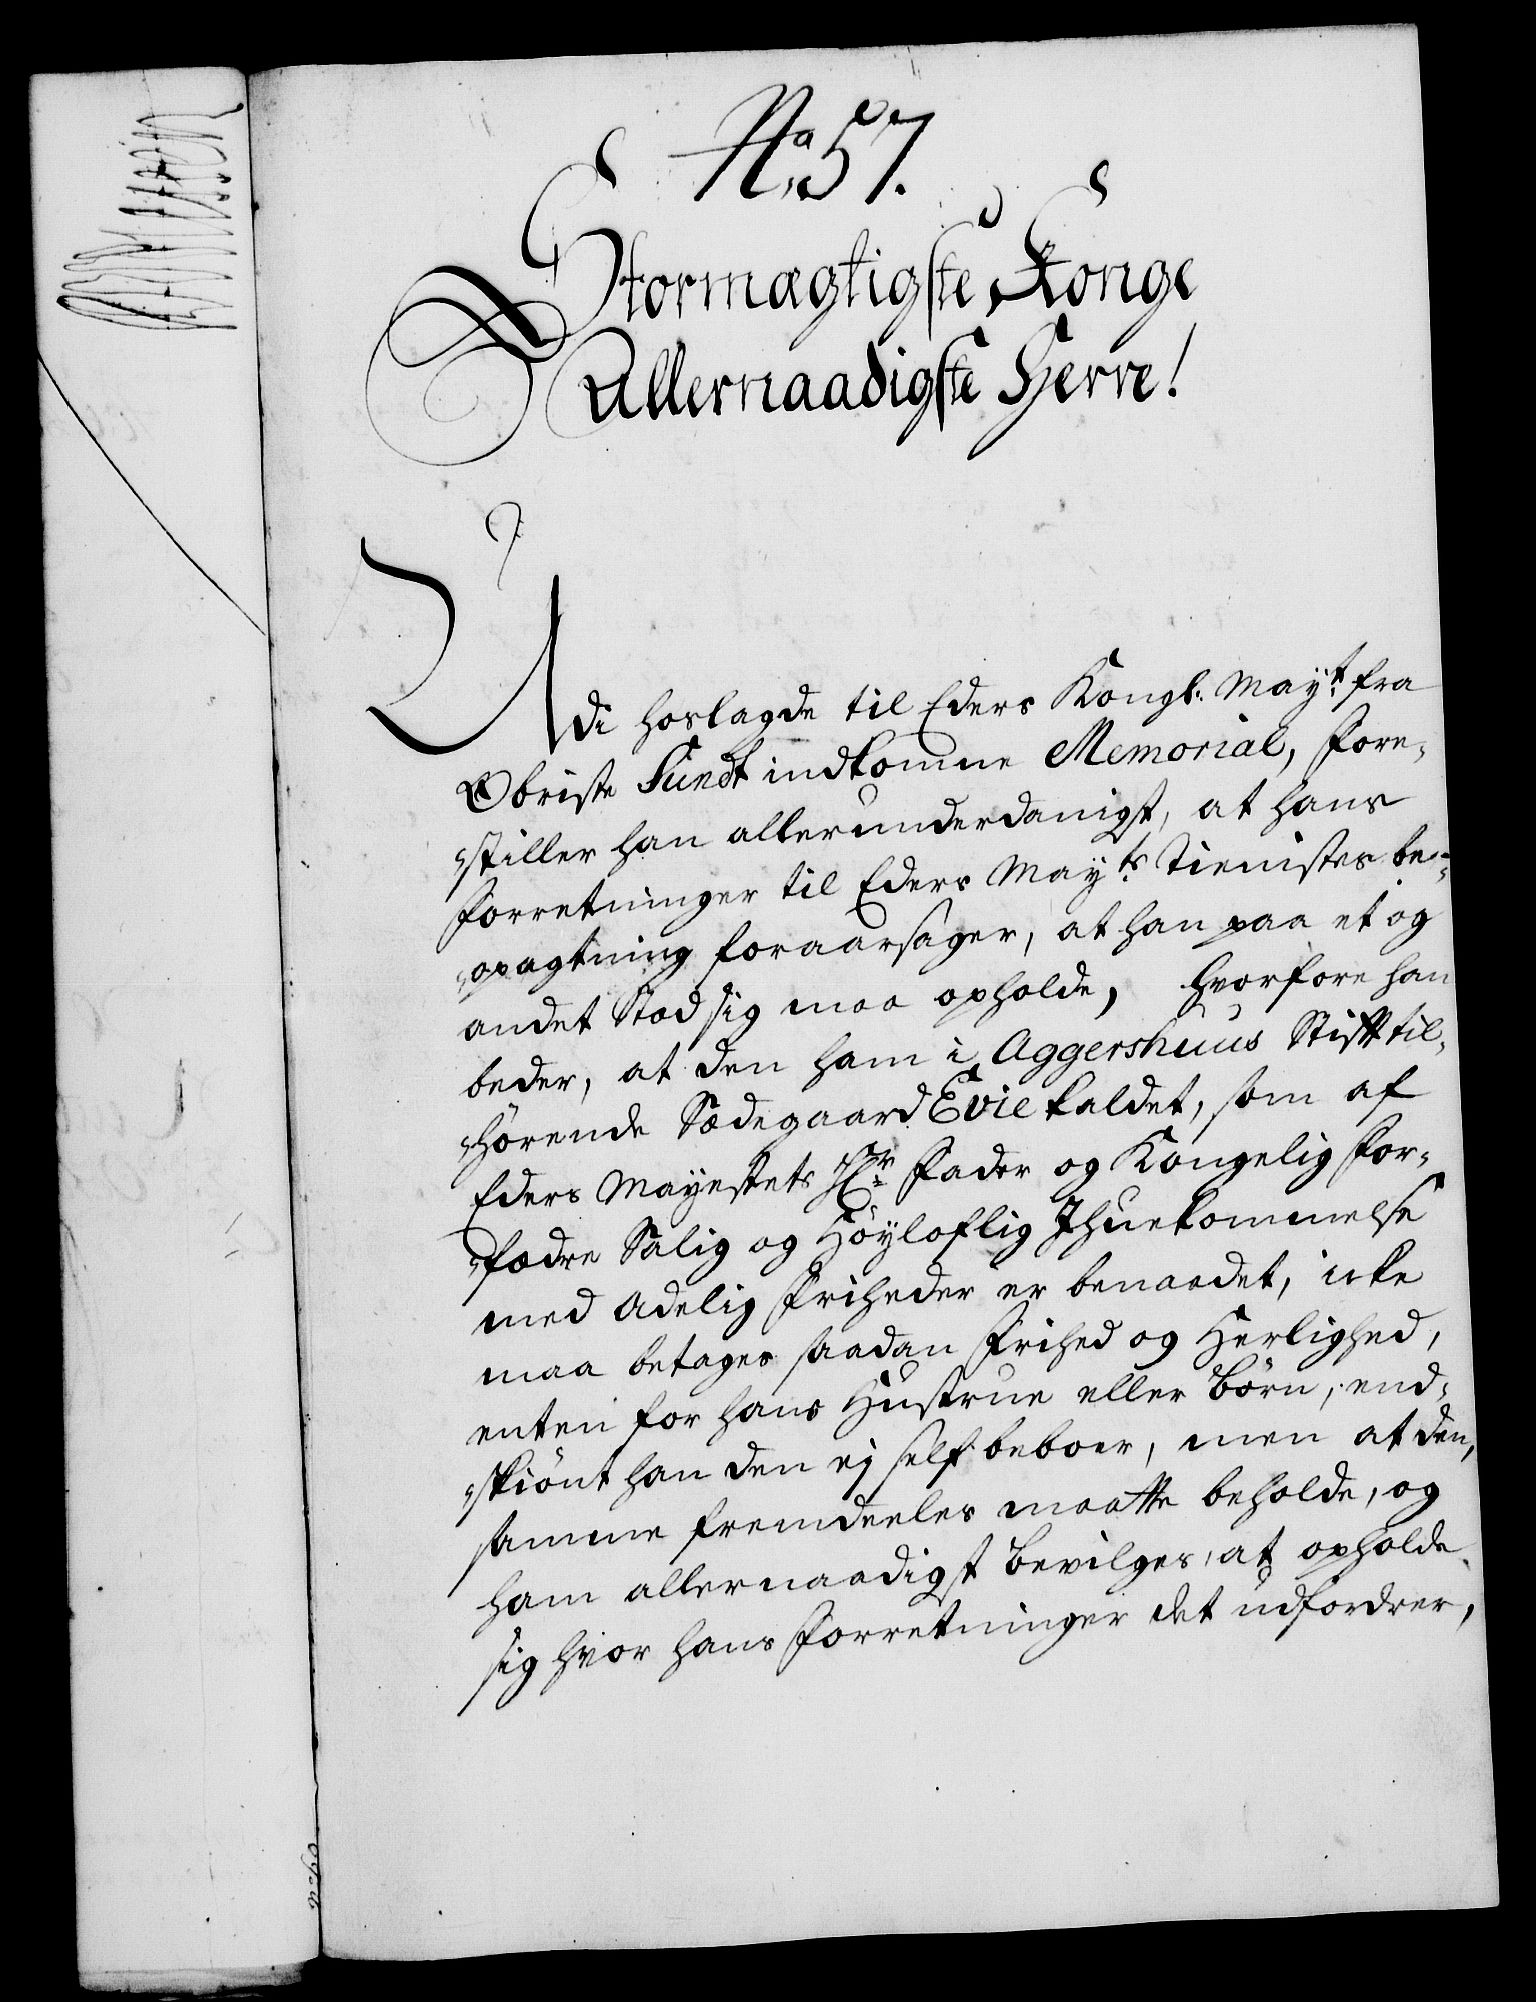 No. 57.
Stormægtigste Konge
Allernaadigste Herre!
Udi hoslagde til Eders Kongl: Mayt. fra
Obriste Sundt indkomne Memorial, fore-
stiller han allerunderdanigst, at hans
Forretninger til Eders Mayts. Tienistes be-
opagtning foraarsager, at han paa et og
andet Stæd sig maa opholde, hvorfore han
beder, at den ham i Aggershuus Stifft til-
hørende Sædegaard Evie kaldet, som af
Eders Mayestets Hr. Fader og Kongelig For-
fædre Salig og Høyloflig Ihuekommelse
med Adelig Friheder er benaadet, icke
maa betages saadan Frihed og Herlighed,
enten for hans Hustrue eller Børn, end-
skiønt han den ej self beboer, men at den,
samme fremdeeles maatte beholde, og
ham allernaadigst bevilges, at opholde
sig hvor hans Forretninger det udfordrer,